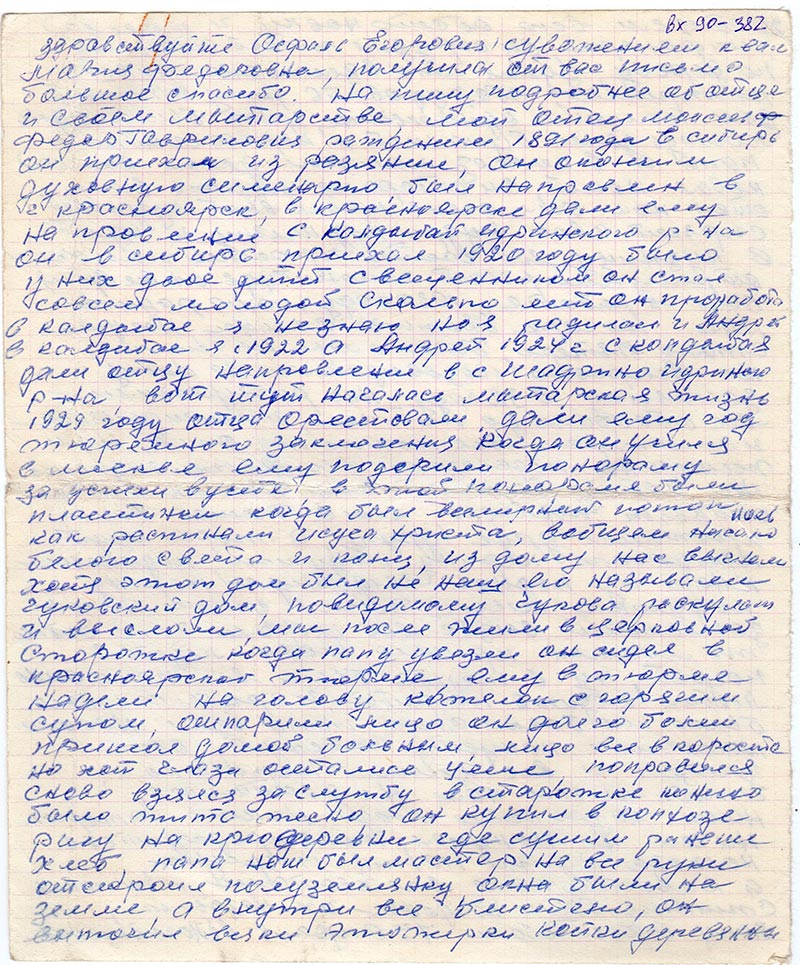 Вх 90-382
здравствуйте Осфаль Егорович! суважением к вам
Мария Федоровна, получила от вас письмо
большое спасибо. На пишу подробнее об отце
и своем мытарстве мой отец
Федор Гаврилович раждения 1891 года в сибирь
он приехал из резянии, он окончил
духовную семенарию, был направлен в
г красноярск, в красноярске дали ему
на провление с колдыбай идринского р-на
он в сибирь приехал 1920 году было
у них двое детей свещенником он стал
совсем молодой сколько лет он проработа
в калдыбае я незнаю но я радилась и Андрей
в калдыбае я с 1922 а Андрей 1924 г с колдыбая
дали отцу направление в с Шадрино идринско
р-на вот тут началась мытарская жизнь
1929 году отца орестовали, дали ему год
тюремного заключения, когда он учился
в москве ему подерили панораму
за успехи в учебе в этой панораме были
пластинки когда был всемирный потоп
как распинали исуса христа, вобщем начало
белого света и конц, из дому нас выгнали
хотя этот дом был не наш его называли
чуковский дом, повидимому Чукова раскулач
и выслали, мы после жили в церковной
сторожке когда папу увезли он сидел в
красноярской тюрьме, ему в тюрьме
надели на голову котелок с горячим
супом, ошпарили лицо он долго болел
пришол домой больным, лицо все в коросте
но хот глаза остались целые, поправился
снова взялся за службу в старожке конешно
было жить тесно он купил в колхозе
ригу на краю деревни где сушили раньше
хлеб, папа нош был мастер на все руки
отстроил полуземлянку окна были на
земле, а внутри все блистело, он
выточил всяки этожерки койки деревянны